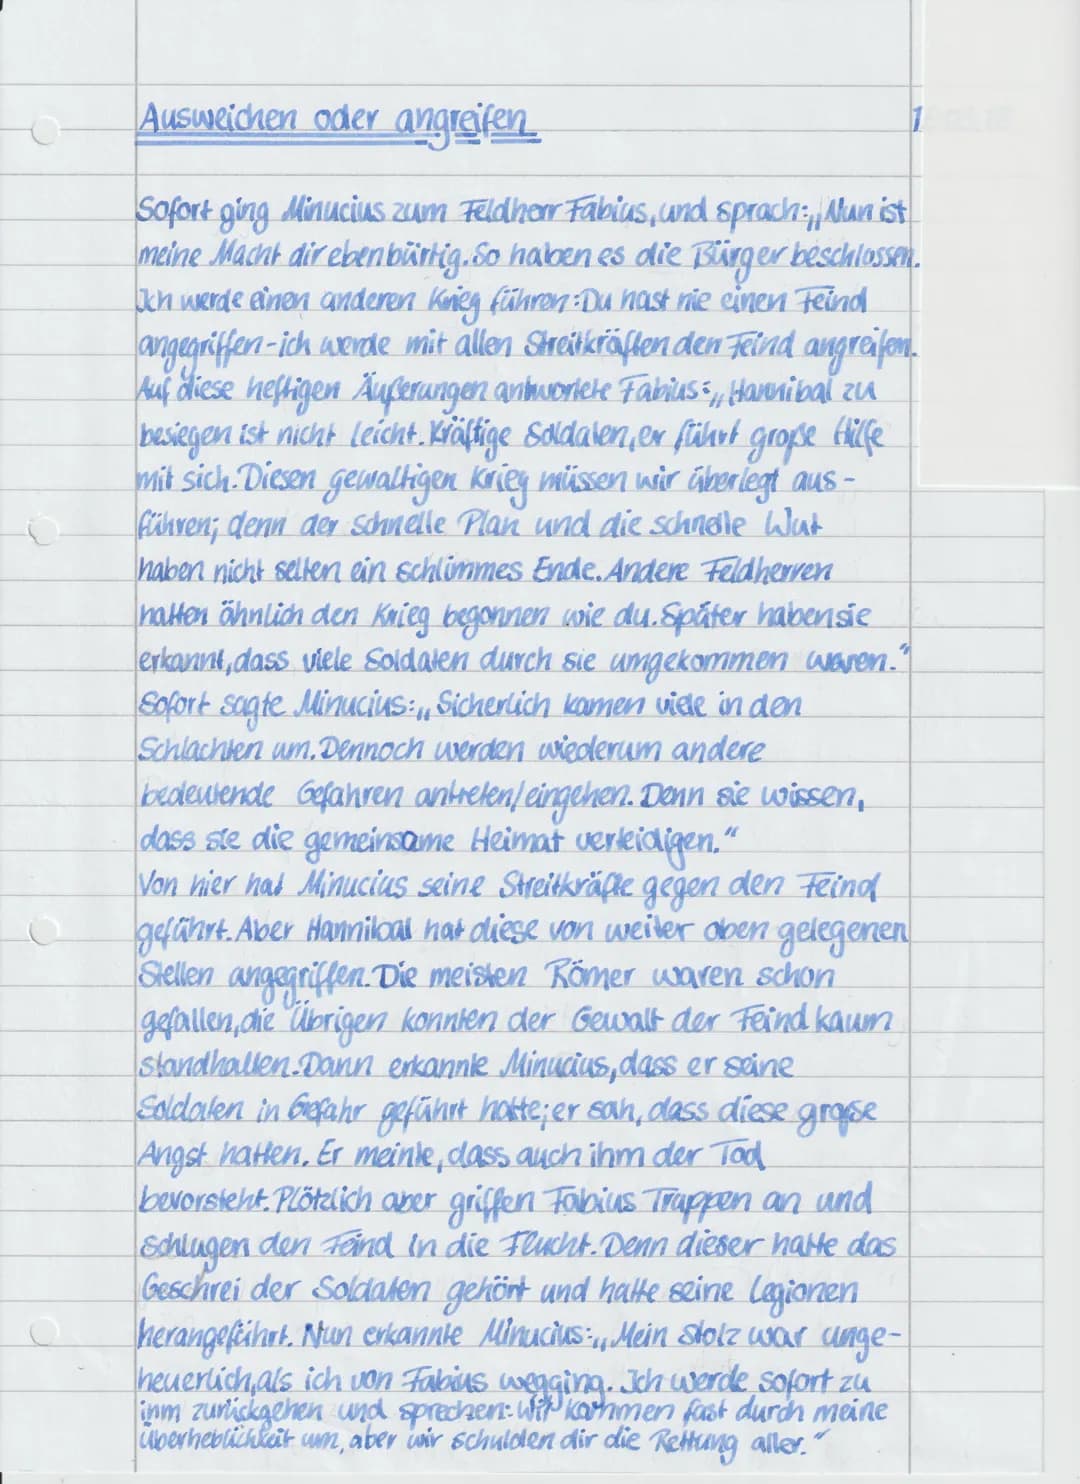 Ausweichen oder angreifen
1
Sofort ging Minucius zum Feldherr Fabius, und sprach:„Nun ist
meine Macht dir ebenbürtig. So haben es die Bürger beschlossen.
Ich werde einen anderen Krieg führen: Du hast nie einen Feind
angegriffen - ich werde mit allen Streitkräften den Feind angreifen.
Auf diese heftigen Äußerungen antwortete Fabius:„Hannibal zu
besiegen ist nicht leicht. Kräftige Soldaten, er führt große Hilfe
mit sich. Diesen gewaltigen Krieg müssen wir überlegt aus-
führen; denn der schnelle Plan und die schnelle Wut
haben nicht selten ein schlimmes Ende. Andere Feldherren
hatten ähnlich den Krieg begonnen wie du. Später haben sie
erkannt, dass viele Soldaten durch sie umgekommen waren."
Sofort sagte Minucius:„Sicherlich kamen viele in den
Schlachten um. Dennoch werden wiederum andere
bedeutende Gefahren antreten/eingehen. Denn sie wissen,
dass sie die gemeinsame Heimat verteidigen."
Von hier hat Minucius seine Streitkräfte gegen den Feind
geführt. Aber Hannibal hat diese von weiter oben gelegenen
Stellen angegriffen. Die meisten Römer waren schon
gefallen, die Übrigen konnten der Gewalt der Feind kaum
standhalten. Dann erkannte Minucius, dass er seine
Soldaten in Gefahr geführt hatte; er sah, dass diese große
Angst hatten. Er meinte, dass auch ihm der Tod
bevorsteht. Plötzlich aber griffen Fabius Truppen an und
schlugen den Feind in die Flucht. Denn dieser hatte das
Geschrei der Soldaten gehört und hatte seine Legionen
herangeführt. Nun erkannte Minucius:„Mein Stolz war unge-
heuerlich, als ich von Fabius wegging. Ich werde sofort zu
ihm zurückgehen und sprechen: Wir kommen fast durch meine
Überheblichkeit um, aber wir schulden dir die Rettung aller."